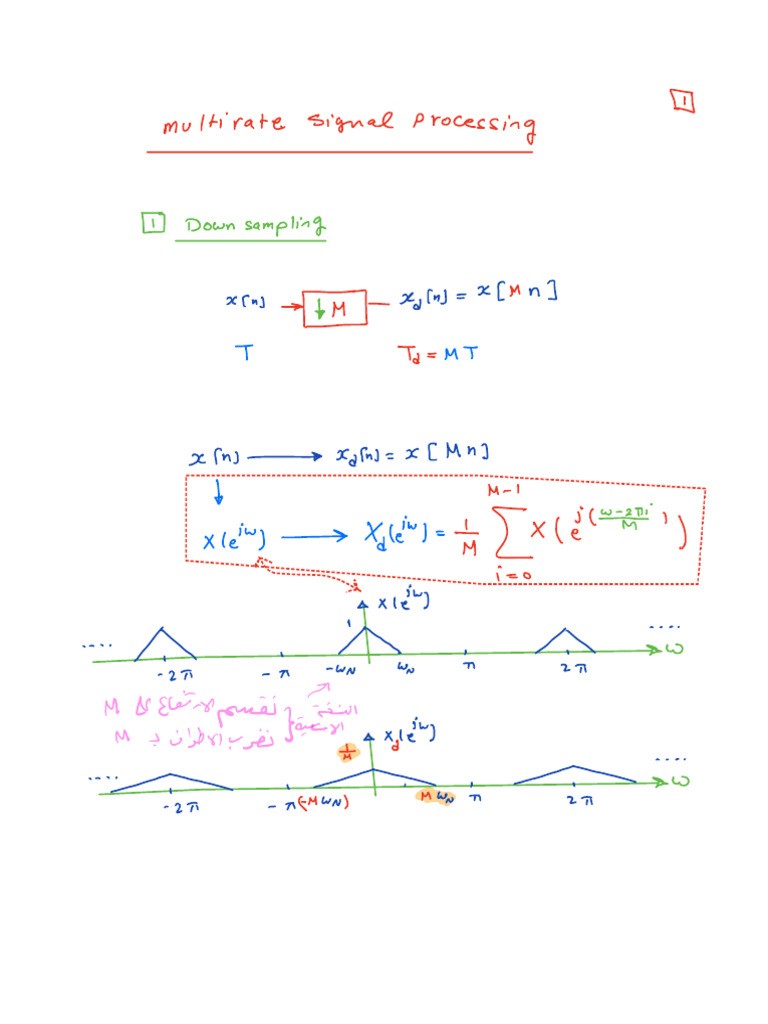 1
multirate signal processing
1 Down sampling
x[n] → ↓ M — x_d[n] = x[M n]
T T_d = M T
x[n] → x_d[n] = x[M n]
X(e^{jω}) → X_d(e^{jω}) = 1/M ∑_{i=0}^{M-1} X(e^{j(ω-2πi/M)})
X(e^{jω})
1
.... ....
-2π -π -ω_N ω_N π 2π ω
النسخة
الأصلية
نقسم الارتفاع على M
نضرب الأطراف بـ M
X_d(e^{jω})
1/M
.... ....
-2π -π (-Mω_N) Mω_N π 2π ω